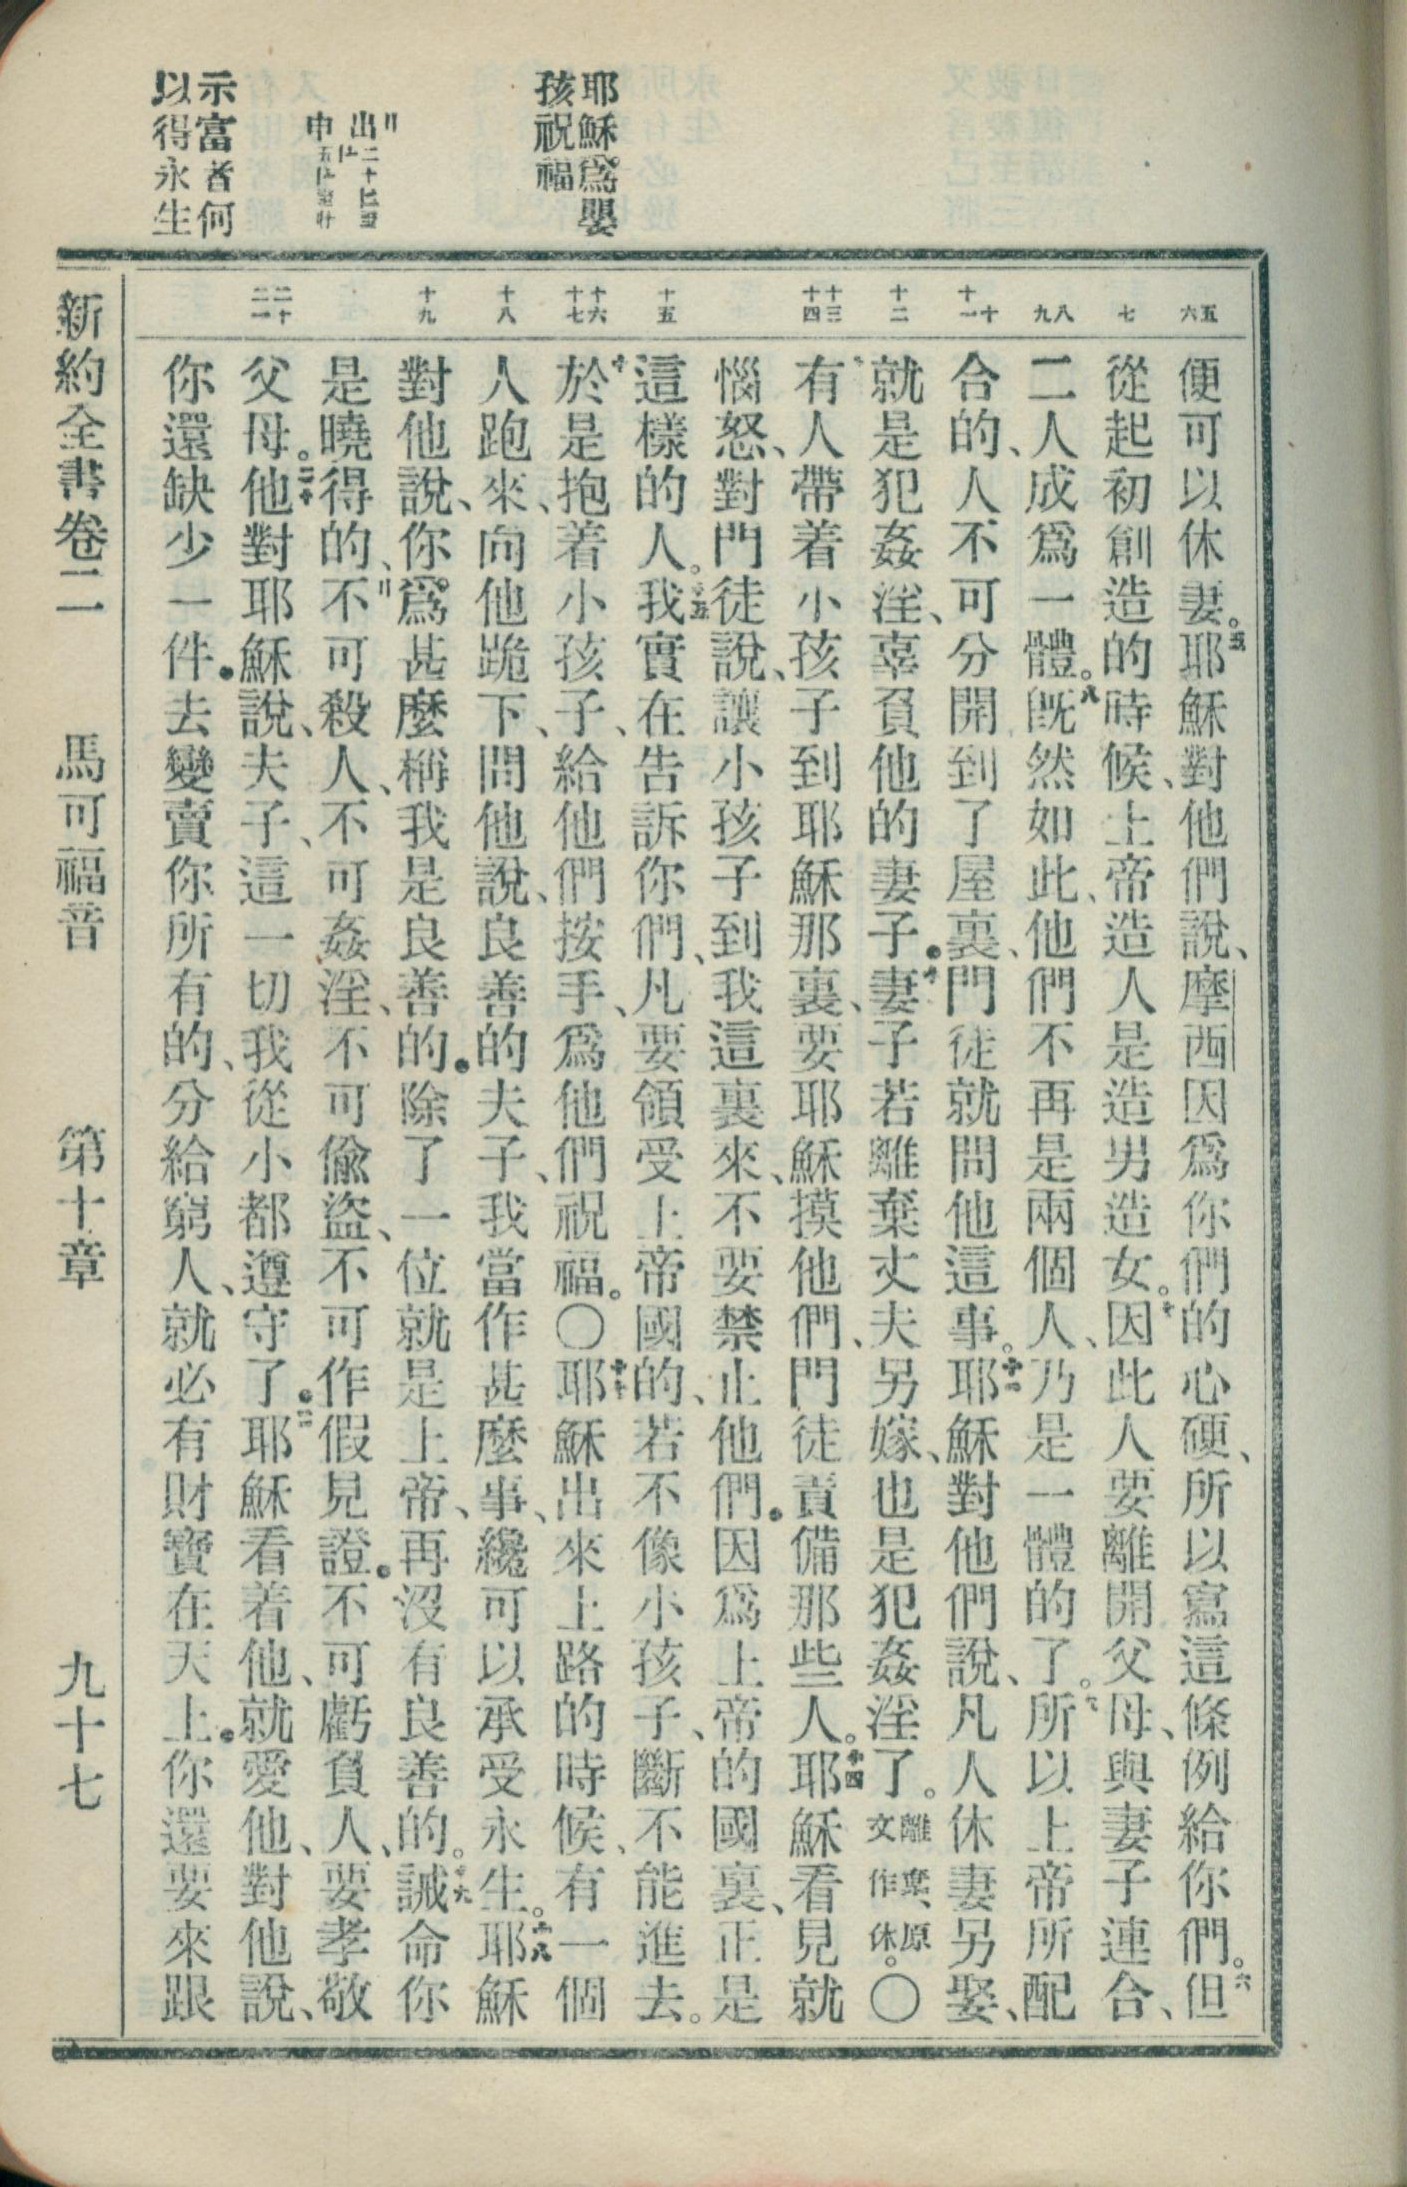 耶穌爲嬰
孩祝福
出二十
申五
示富者何
以得永生
五六
七
八九
十十一
十二
十三十四
十五
十六十七
十八
十九
二十二一
便可以休妻。五耶穌對他們說、摩西因爲你們的心硬、所以寫這條例給你們。六但
從起初創造的時候、上帝造人是造男造女。七因此人要離開父母、與妻子連合、
二人成爲一體。八旣然如此、他們不再是兩個人、乃是一體的了。九所以上帝所配
合的、人不可分開到了屋裏、門徒就問他這事。十一耶穌對他們說、凡人休妻另娶、
就是犯姦淫、辜負他的妻子。十二妻子若離棄丈夫另嫁、也是犯姦淫了。離棄、原文作休。〇
有人帶着小孩子到耶穌那裏、要耶穌摸他們、門徒責備那些人。十四耶穌看見就
惱怒、對門徒說、讓小孩子到我這裏來、不要禁止他們。因爲上帝的國裏、正是
這樣的人。十五我實在告訴你們、凡要領受上帝國的、若不像小孩子、斷不能進去。
於是抱着小孩子、給他們按手、爲他們祝福。〇十七耶穌出來上路的時候、有一個
人跑來、向他跪下、問他說、良善的夫子、我當作甚麼事、纔可以承受永生。十八耶穌
對他說、你爲甚麼稱我是良善的。除了一位就是上帝、再沒有良善的。十九誡命你
是曉得的、不可殺人、不可姦淫、不可偸盜、不可作假見證。不可虧負人、要孝敬
父母。二十他對耶穌說、夫子、這一切我從小都遵守了。二一耶穌看着他、就愛他、對他說、
你還缺少一件。去變賣你所有的、分給窮人、就必有財寶在天上。你還要來跟
新約全書卷二　馬可福音　第十章　九十七